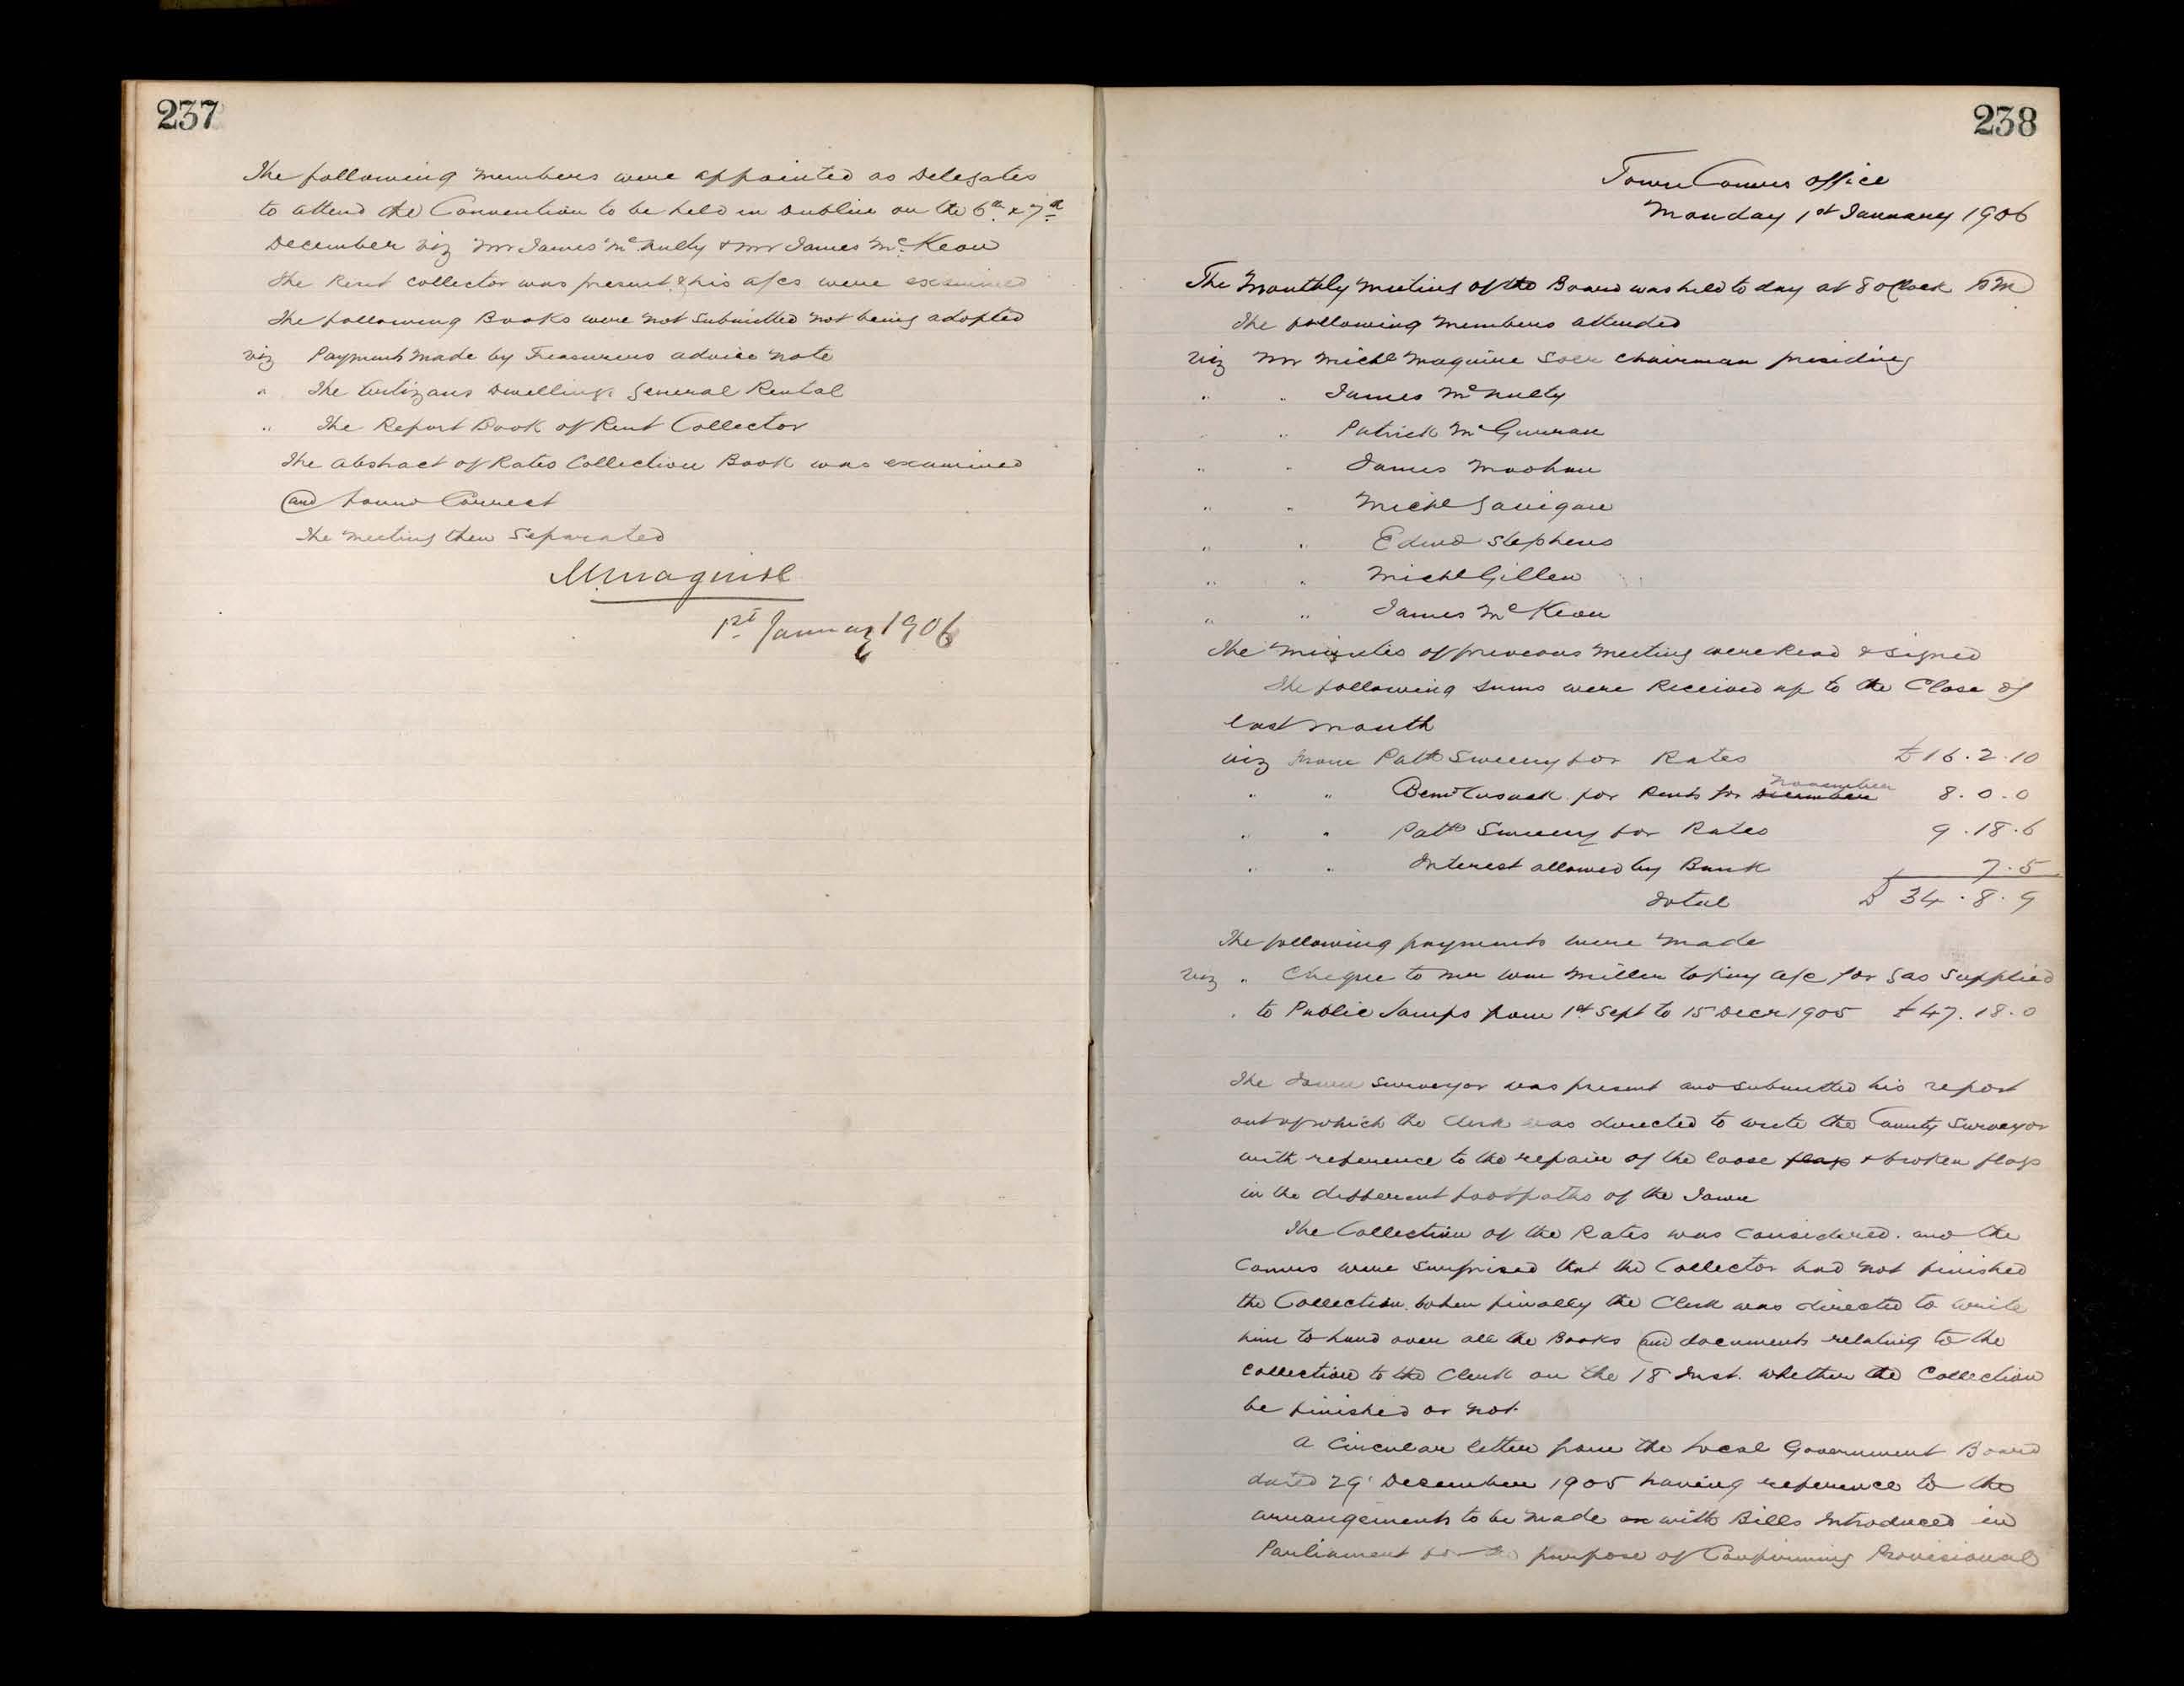 237
The following members were appointed as Delegates
to attend the Convention to be held in Dublin on the 6th & 7th
December viz Mr James McNulty & Mr James McKeon
The Rent Collector was present & his a/cs were examined
The following Books were not submitted not being adopted
viz Payments made by Treasurers advice note
" The Artizans Dwellings General Rental
" The Report Book of Rent Collector
The Abstract of Rates Collection Book was examined
and found Correct
The meeting then separated
M. Maguire
1st January 1906
238
Town Comrs office
Monday 1st January 1906
The Monthly meeting of the Board was held to day at 8 oClock PM
The following members attended
viz Mr Michl Maguire Chairman presiding
" " James McNulty
" " Patrick McGurran
" " James Moohan
" " Michl Gavigan
" " Edwd Stephens
" " Michl Gillen
" " James McKeon
The minutes of preveous meeting were Read & signed
The following sums were Received up to the Close of
last month
viz from Patk Sweeny for Rates £16.2.10
" " Bernd Cusack for Rents for December November 8.0.0
" " Patk Sweeny for Rates 9.18.6
" " Interest allowed by Bank 7.5
Total £34.8.9
The following payments were made
viz " Cheque to Mr Wm Miller to pay a/c for gas supplied
to Public Lamps from 1st Sept to 15 Decr 1905 £47.18.0
The Town Surveyor was present and submitted his report
out of which the Clerk was directed to write the County Surveyor
with reference to the repair of the loose flags & broken flags
in the different footpaths of the Town
The Collection of the Rates was considered. and the
Comrs were surprised that the Collector had not finished
the Collection. when finally the Clerk was directed to write
him to hand over all the Books and documents relating to the
collection to the Clerk on the 18 Inst. whether the Collection
be finished or not.
A Circular letter from the Local Government Board
dated 29 December 1905 having reference to the
arrangements to be made on with Bills Introduced in
Parliament for the purpose of Confirming Provisional